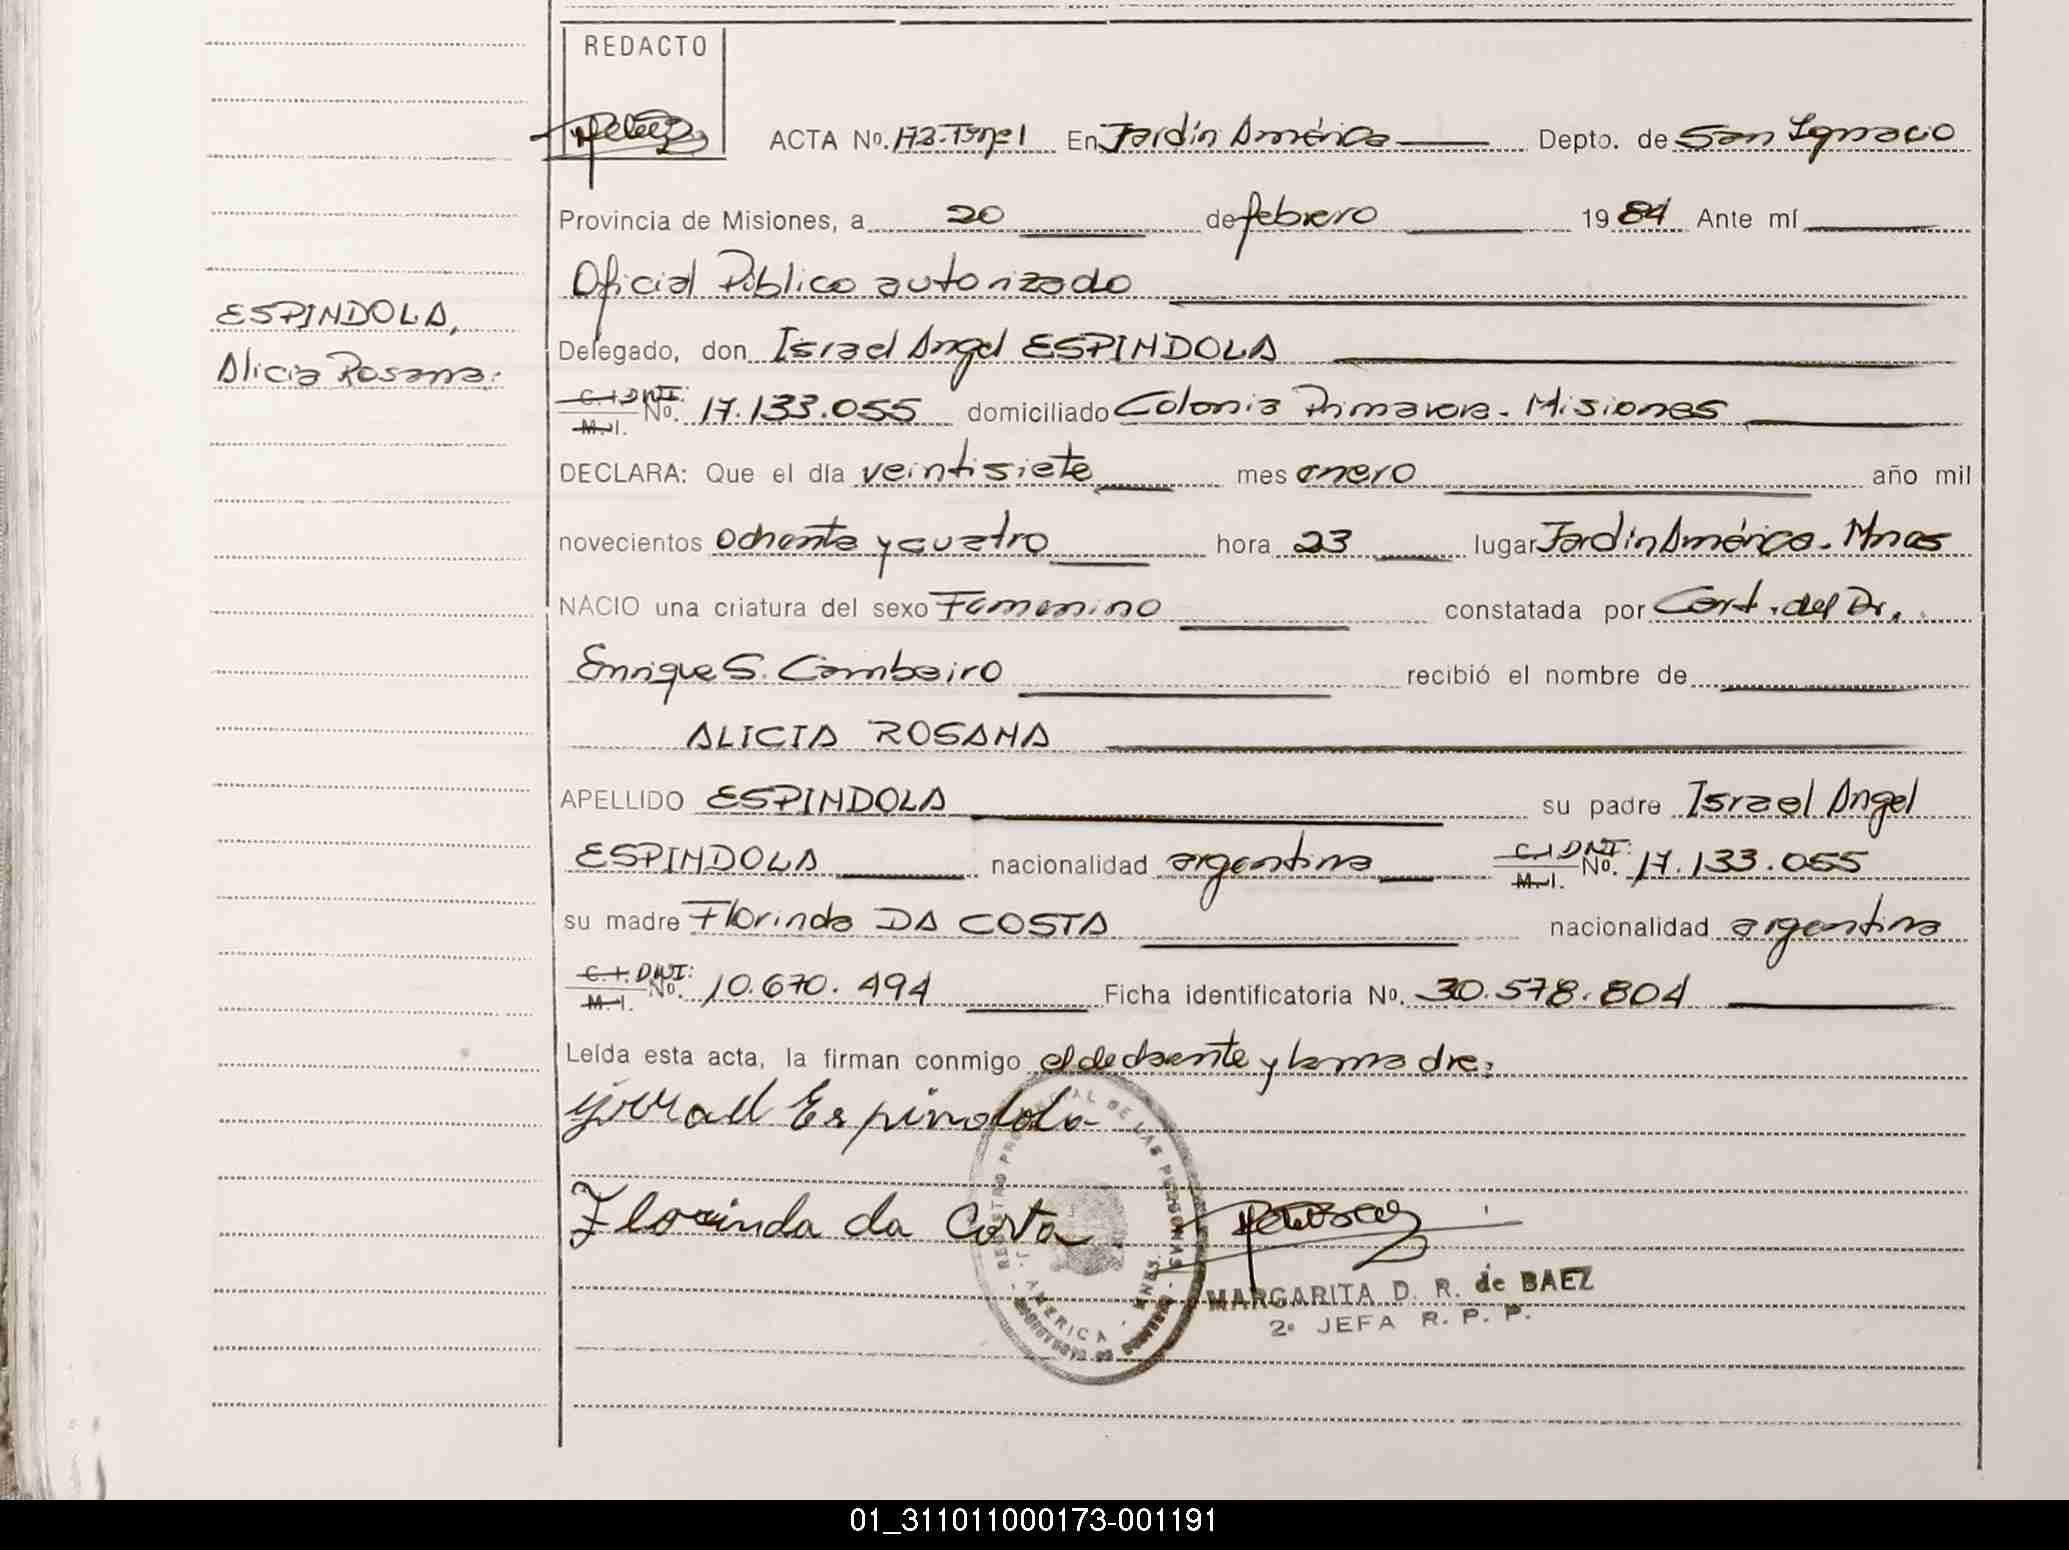 REDACTO
ACTA No. 173-Tº I En Jardín América Depto. de San Ignacio
Provincia de Misiones, a 20 de febrero 1984 Ante mí
Oficial Público autorizado
ESPINDOLA,
Alicia Rosana:
Delegado, don Israel Angel ESPINDOLA
C.I. DNI: M.I. No. 17.133.055 domiciliado Colonia Primavera - Misiones
DECLARA: Que el día veintisiete mes enero año mil
novecientos ochenta y cuatro hora 23 lugar Jardín América - Mnes
NACIO una criatura del sexo Femenino constatada por Cert. del Dr.
Enrique S. Cambeiro recibió el nombre de
ALICIA ROSANA
APELLIDO ESPINDOLA su padre Israel Angel
ESPINDOLA nacionalidad argentina C.I. DNI: M.I. No. 17.133.055
su madre Florinda DA COSTA nacionalidad argentina
C.I. DNI: M.I. No. 10.670.494 Ficha identificatoria No. 30.578.804
Leída esta acta, la firman conmigo el declarante y la madre:
Israel Espindola
Florinda da Costa
REGISTRO PROVINCIAL DE LAS PERSONAS
J. AMERICA - MNES.
MARGARITA D. R. de BAEZ
2º JEFA R. P. P.
01_311011000173-001191